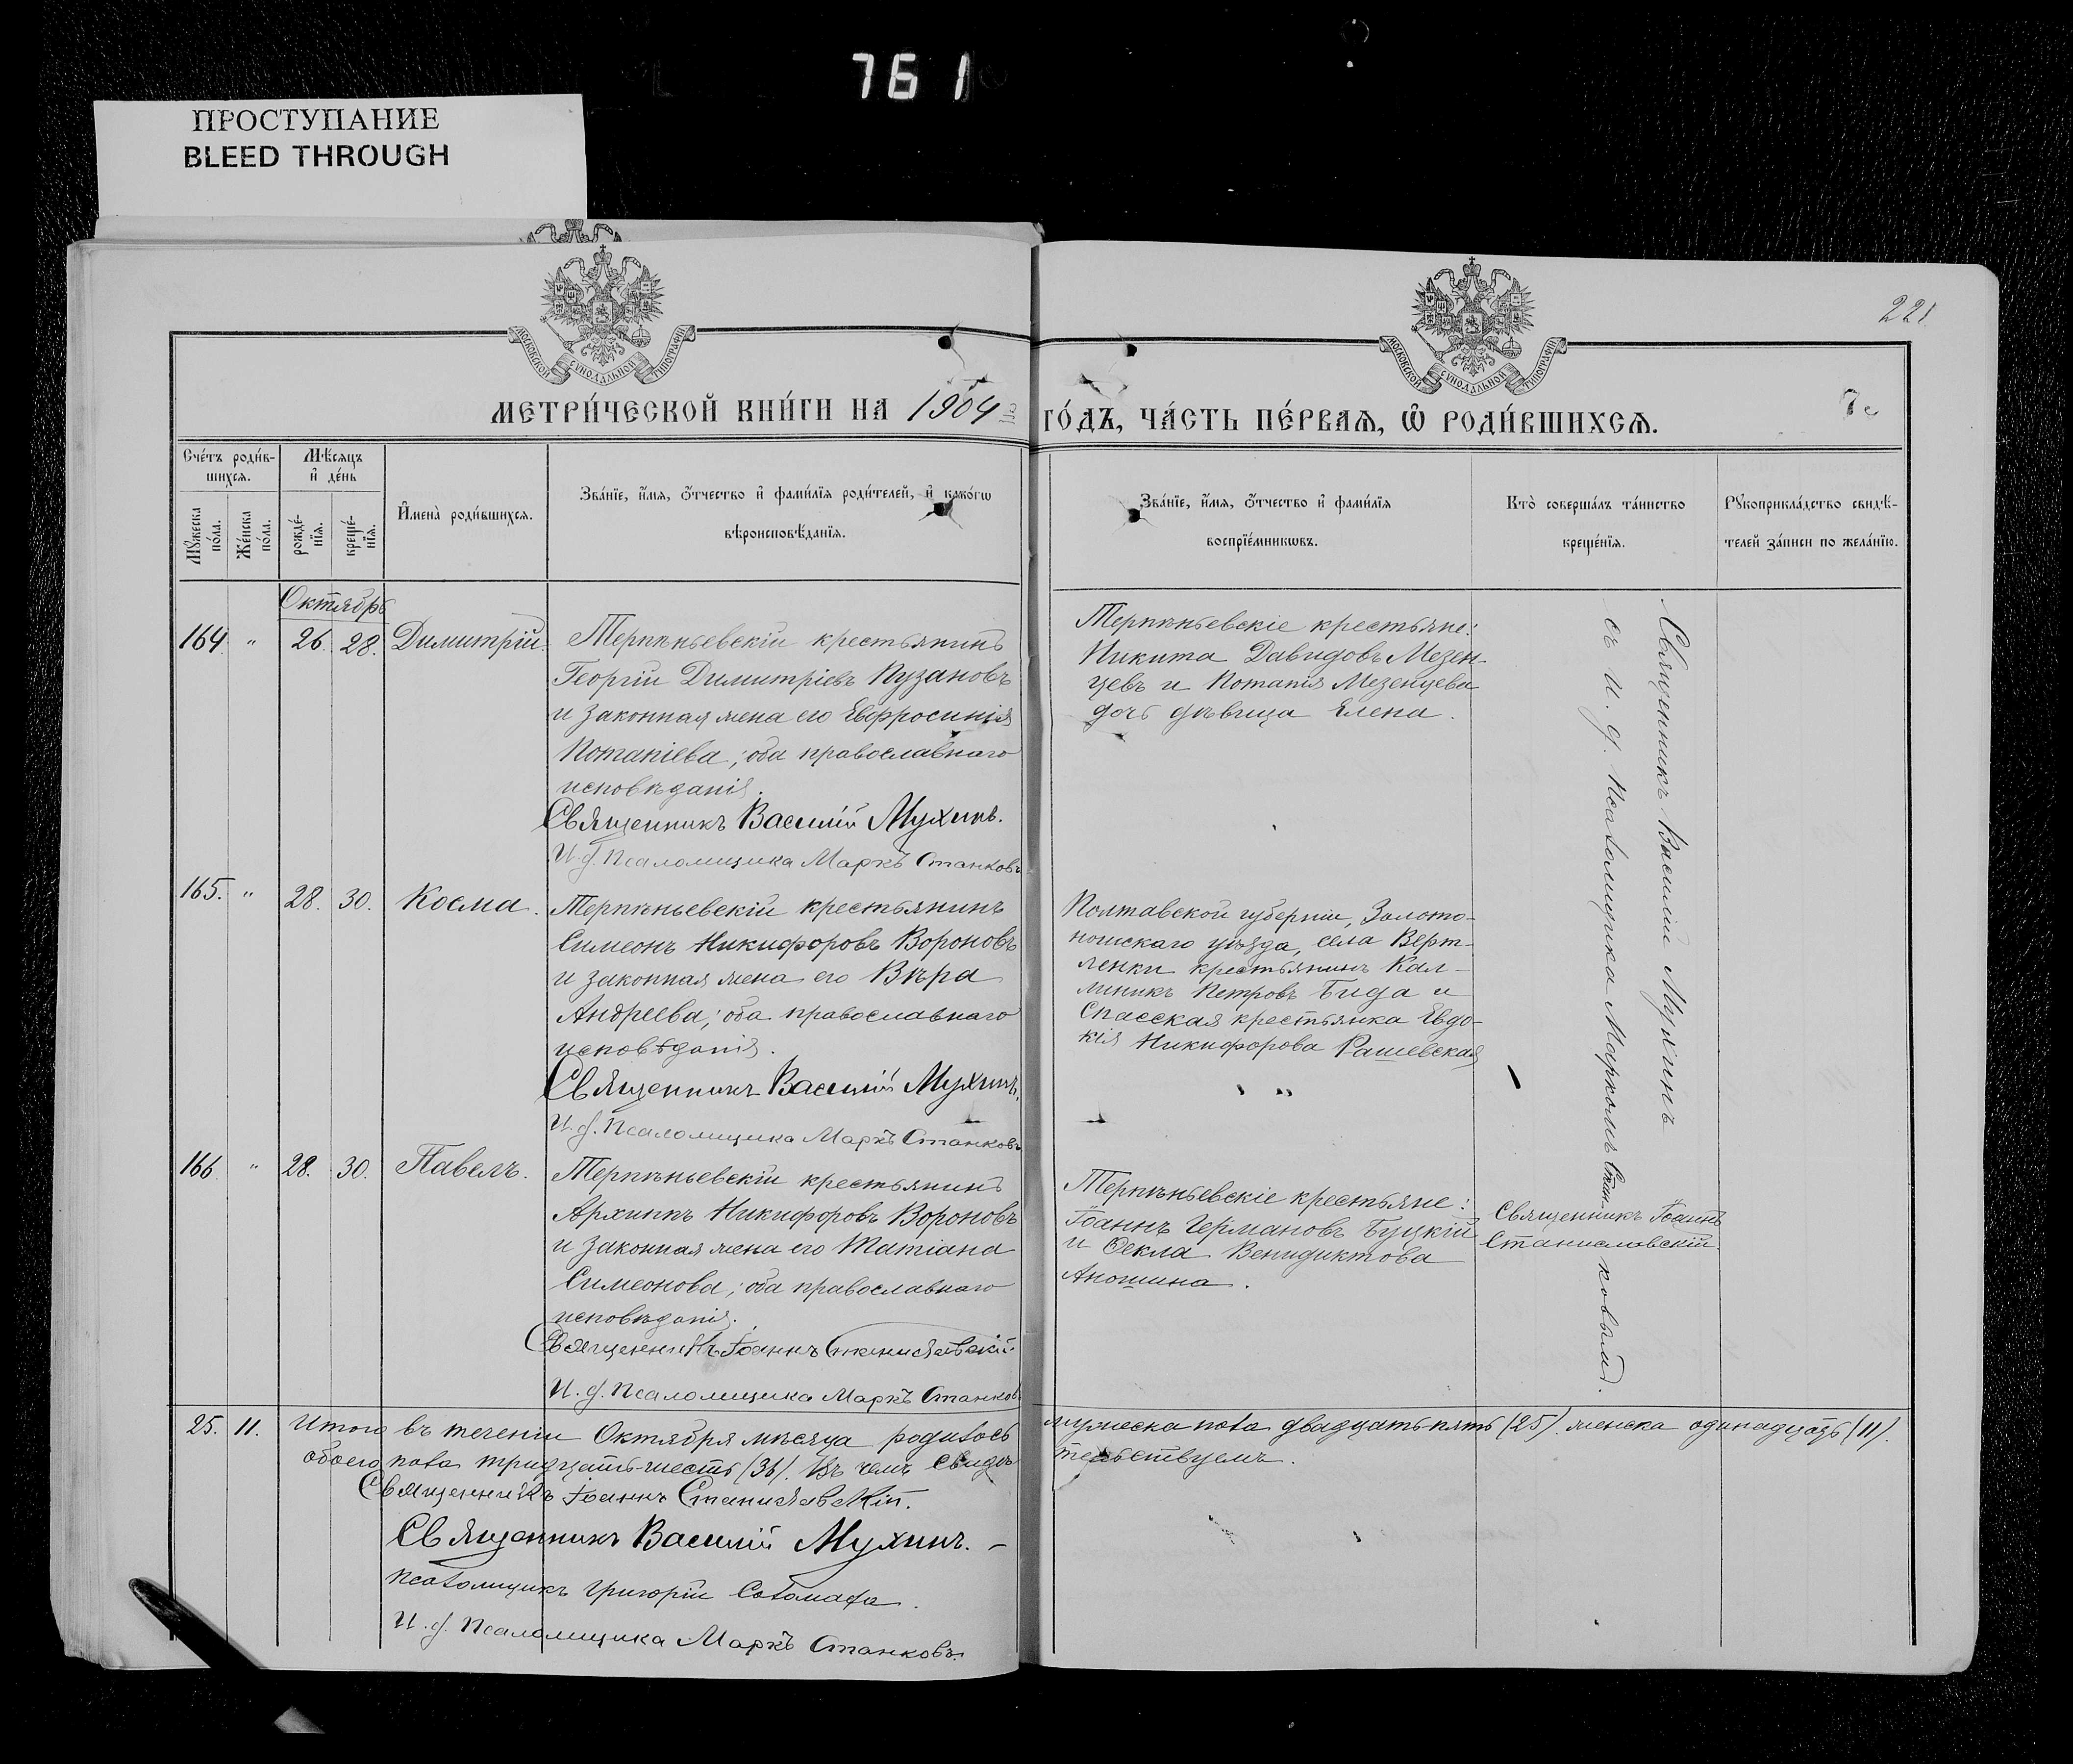 761
ПРОСТУПАНИЕ
BLEED THROUGH
МОСКОВСКОЙ СѴНОДАЛЬНОЙ ТИПОГРАФІИ
МОСКОВСКОЙ СѴНОДАЛЬНОЙ ТИПОГРАФІИ
221
МЕТРИ́ЧЕСКОЙ КНИ́ГИ НА 1904 ГО́ДЪ, ЧА́СТЬ ПЕ́РВАѦ, Ѡ҆ РОДИ́ВШИХСѦ.
Сче́тъ роди́в-
шихсѧ.
Мѣ́сѧцъ
и҆ де́нь
Мꙋ́жеска
по́ла.
Же́нска
по́ла.
рожде́-
нїѧ.
креще́-
нїѧ.
И҆мена̀ роди́вшихсѧ.
Зва́нїе, и҆́мѧ, ѻ҆́тчество и҆ фами́лїѧ роди́телей, и҆ како́гѡ
вѣроисповѣ́данїѧ.
Зва́нїе, и҆́мѧ, ѻ҆́тчество и҆ фами́лїѧ
воспрїе́мникѡвъ.
Кто̀ соверша́лъ та́инство
креще́нїѧ.
Рꙋкоприкла́дство свидѣ́-
телей за́писи по жела́нїю.
Октябрь
164. " 26. 28. Димитрій.
Терпѣньевскій крестьянинъ
Георгій Димитріевъ Пузановъ
и законная жена его Евфросинія
Потапіева; оба православнаго
исповѣданія.
Священникъ Василій Мухинъ.
И. д. Псаломщика Маркъ Станковъ
Терпѣньевскіе крестьяне:
Никита Давидовъ Мезен-
цевъ и Потапія Мезенцева
дочь дѣвица Елена.
Священникъ Василій Мухинъ
съ и. д. Псаломщика Маркомъ Стан-
ковымъ.
165. " 28. 30. Косма.
Терпѣньевскій крестьянинъ
Симеонъ Никифоровъ Вороновъ
и законная жена его Вѣра
Андреева; оба православнаго
исповѣданія.
Священникъ Василій Мухинъ.
И. д. Псаломщика Маркъ Станковъ
Полтавской губерніи, Золото-
ношскаго уѣзда, села Верт-
ленки крестьянинъ Кал-
линикъ Петровъ Бида и
Спасская крестьянка Евдо-
кія Никифорова Рашевская
166 " 28. 30. Павелъ.
Терпѣньевскій крестьянинъ
Архиппъ Никифоровъ Вороновъ
и законная жена его Татіана
Симеонова; оба православнаго
исповѣданія.
Священникъ Іоаннъ Станиславскій
И. д. Псаломщика Маркъ Станков
Терпѣньевскіе крестьяне:
Іоаннъ Германовъ Буцкій
и Ѳекла Венидиктова
Аношина.
Священникъ Іоаннъ
Станиславскій.
25. 11. Итого въ теченіи Октября мѣсяца родилось мужеска пола двадцать пять (25). женска одинадцать (11).
обоего пола тридцать-шесть (36). Въ чемъ свидѣтельствуемъ.
Священникъ Іоаннъ Станиславскій.
Священникъ Василій Мухинъ. –
Псаломщикъ Григорій Соломаха.
И. д. Псаломщика Маркъ Станковъ.